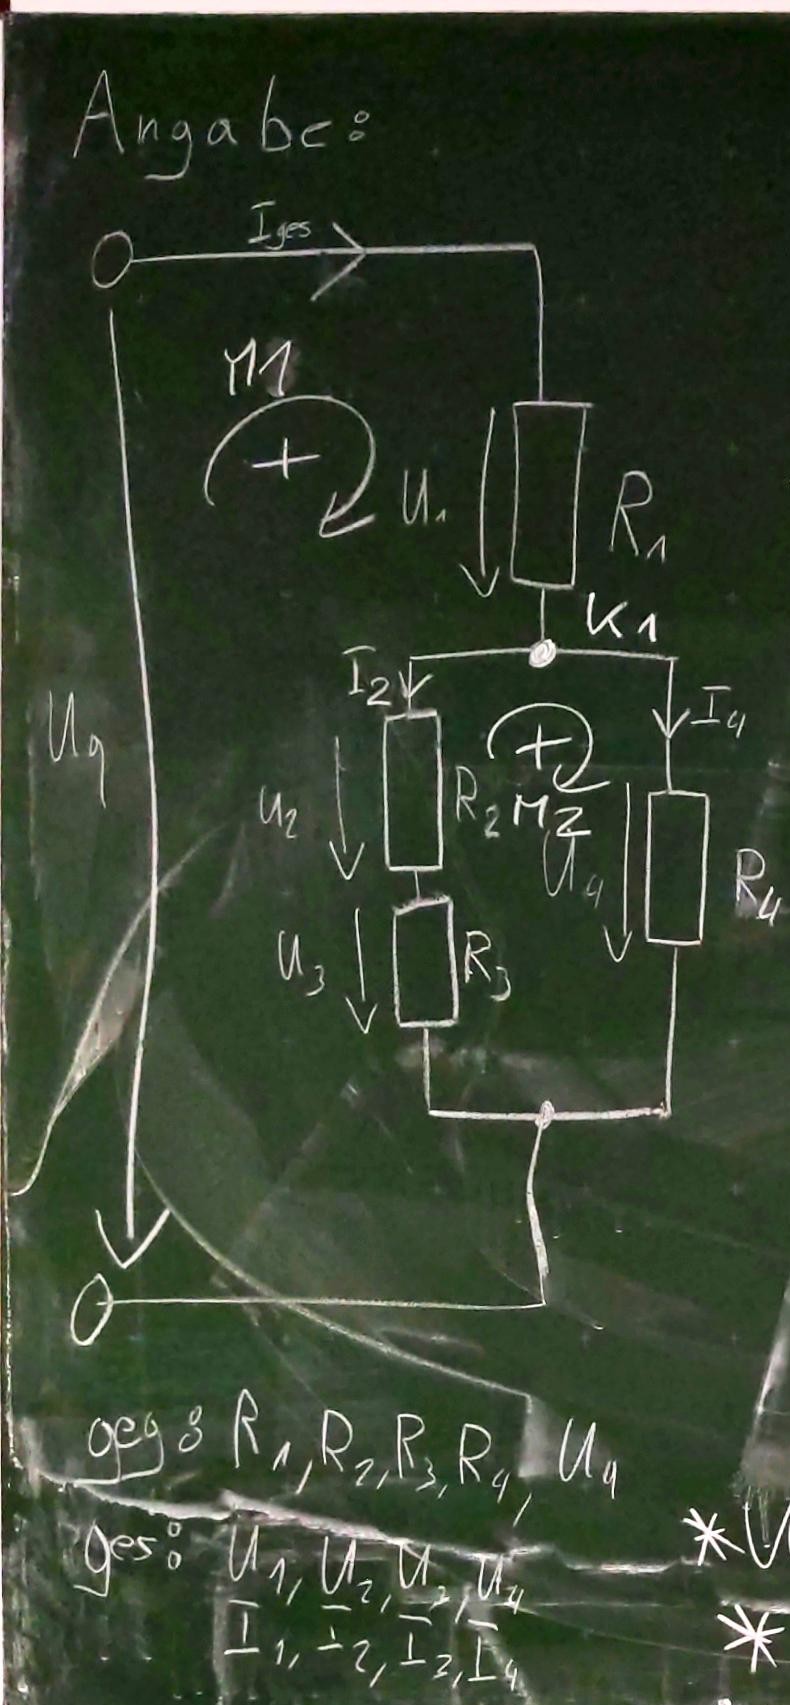 Angabe:
Iges
M1
+
U1
R1
K1
I2
I4
+
Uq
U2
R2
M2
U4
R4
U3
R3
geg: R1, R2, R3, R4, Uq
ges: U1, U2, U3, U4
I1, I2, I3, I4
*U
*